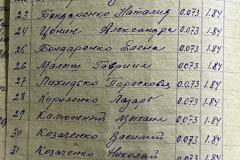 23 Бондаренко Наталия 0.073 1.84
24 Цонин Александра 0.073 1.84
25 Бондаренко Елена 0.073 1.84
26 Гавриил 0.073 1.84
27 Парасковия 0.073 1.84
28 Кириленко Лазарь 0.073 1.84
29 0.073 1.84
30 Козаченко Василий 0.073 1.84
31 Козаченко Николай 0.073 1.84